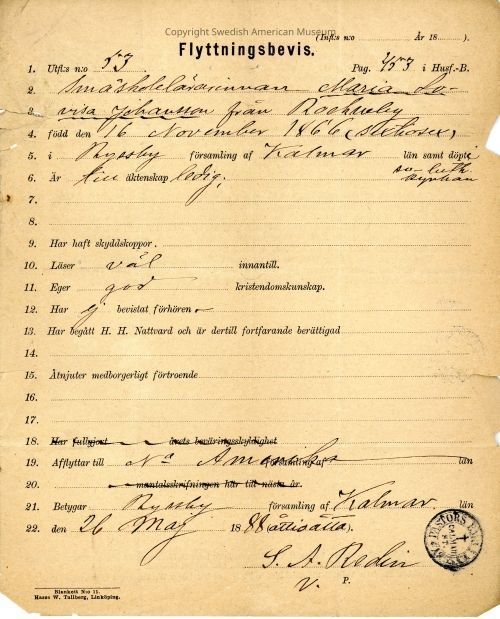 Copyright Swedish American Museum
(Infl: n:o År 18 ).
Flyttningsbevis.
1. Utfl: n:o 53 Pag. 453 i Husf.-B.
2. Småskolelärarinnan Maria Lo-
3. visa Johansson från Rockneby
4. född den 16 November 1866 (sextiosex)
5. i Ryssby församling af Kalmar län samt döpt
6. Är till äktenskap ledig;
7.
8.
9. Har haft skyddskoppor.
10. Läser väl innantill.
11. Eger god kristendomskunskap.
12. Har ej bevistat förhören.
13. Har begått H. H. Nattvard och är dertill fortfarande berättigad
14.
15. Åtnjuter medborgerligt förtroende
16.
17.
18. Har fullgjort årets beväringsskyldighet
19. Afflyttar till N. Amerika församling af län
20. mantalsskrifningen här till nästa år.
21. Betygar Ryssby församling af Kalmar län
22. den 26 Maj 1888 (åttioåtta).
S. A. Rodin
V. P.
Blankett N:o 11.
Hanns W. Tullberg, Linköping.